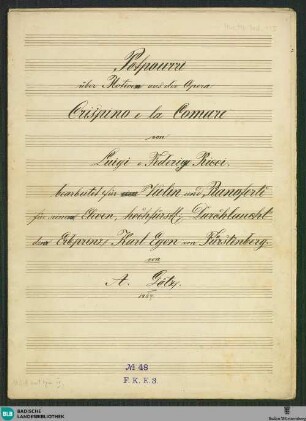 Potpourri
über Motive aus der Opera
Crispino e la Comare
von
Luigi e Federigo Ricci.
bearbeitet für Violin und Pianoforte
für seinen Eleven, hochfürstl. Durchlaucht
den Erbprinz Karl Egon von Fürstenberg.
von
A. Götz.
№ 48
F. K. E. 3.
BLB BADISCHE
LANDESBIBLIOTHEK
Baden-Württemberg